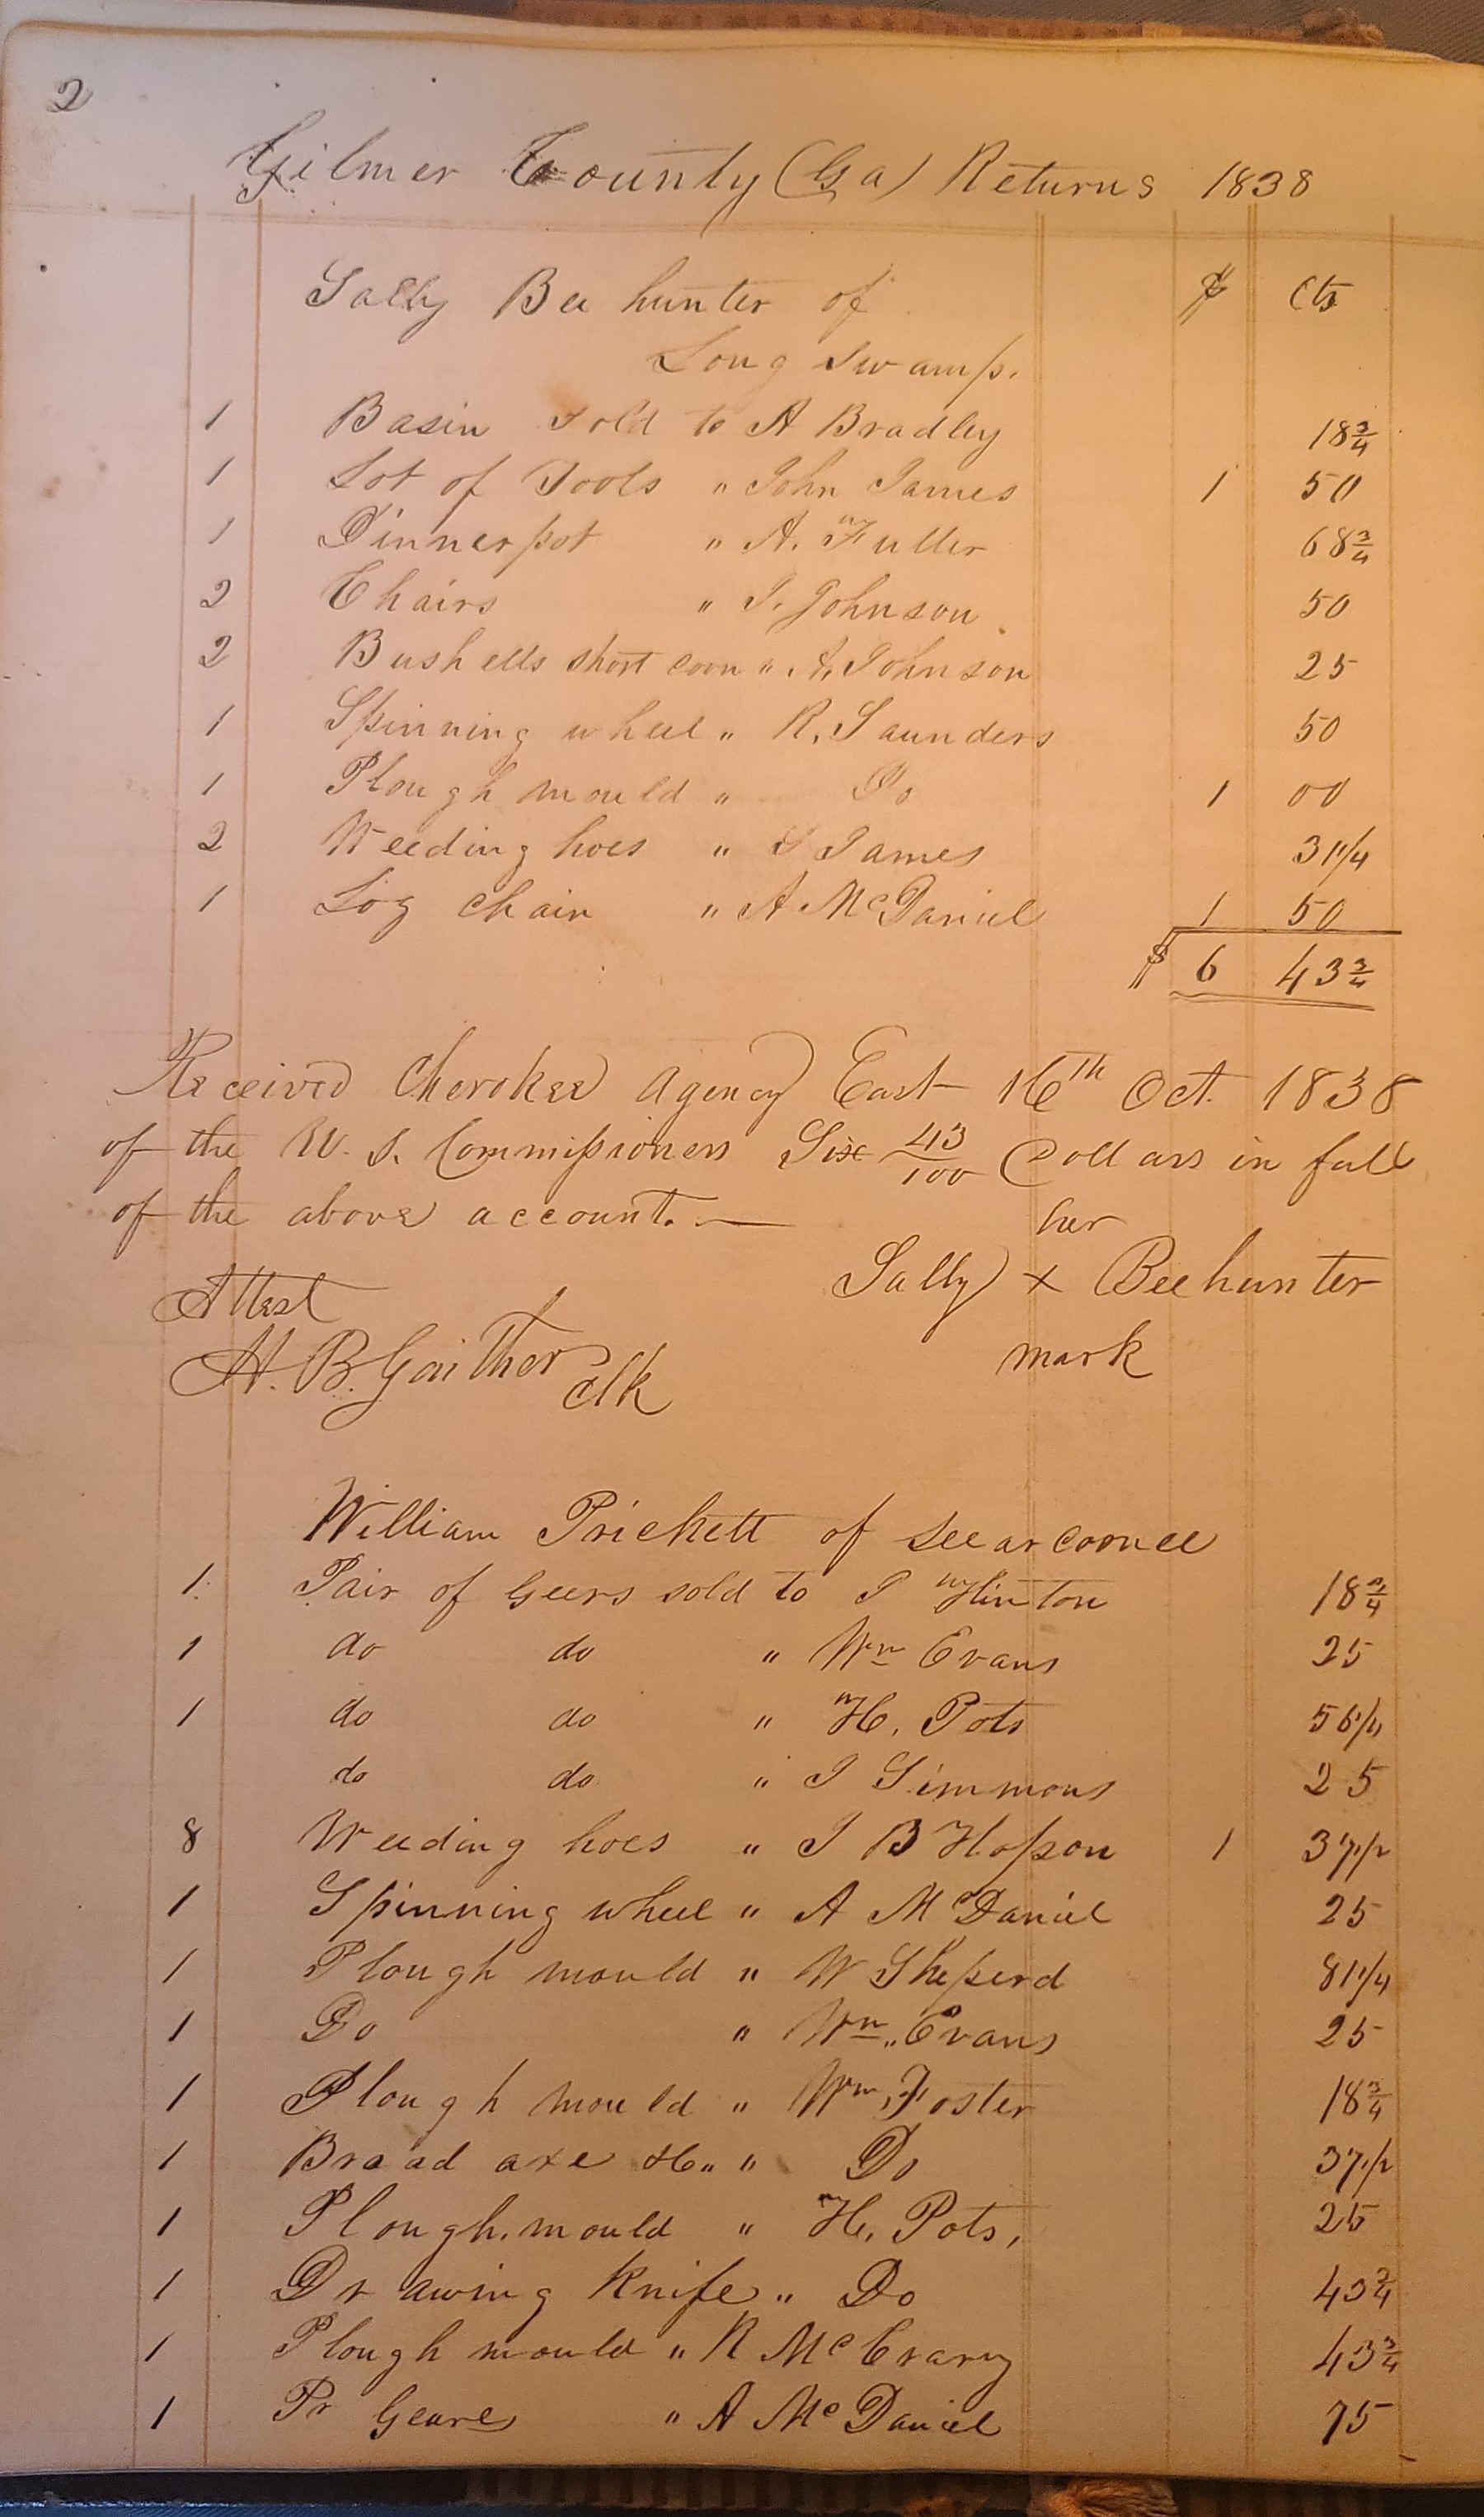 2
Gilmer County (Ga) Returns 1838
Sally Bee hunter of $ Cts
Long Swamp.
1 Basin sold to A Bradley 18 3/4
1 Lot of Tools " John James 1 50
1 Dinner pot " A. Fuller 68 3/4
2 Chairs " J. Johnson 50
2 Bushells short corn " A. Johnson 25
1 Spinning wheel " R. Saunders 50
1 Plough mould " Do 1 00
2 Weeding hoes " J James 31 1/4
1 Log chain " A McDaniel 1 50
$ 6 43 3/4
Received Cherokee Agency East 16th Oct. 1838
of the U. S. Commissioners Six 43/100 Dollars in full
of the above account. —
her
Sally x Beehunter
mark
Attest
H. B. Gaither Clk
William Prickett of
1 Pair of Geers sold to J Hinton 18 3/4
1 do do " Wm Evans 25
1 do do " H. Pots 56 1/4
do do " J Simmons 25
8 Weeding hoes " J B Hopson 1 37 1/2
1 Spinning wheel " A McDaniel 25
1 Plough mould " W Sheperd 81 1/4
1 Do " Wm. Evans 25
1 Plough mould " Wm. Foster 18 3/4
1 Broad axe &c " " Do 37 1/2
1 Plough mould " H. Pots, 25
1 Drawing Knife " Do 43 3/4
1 Plough mould " R McCrary 43 3/4
1 Pr Geares " A McDaniel 75